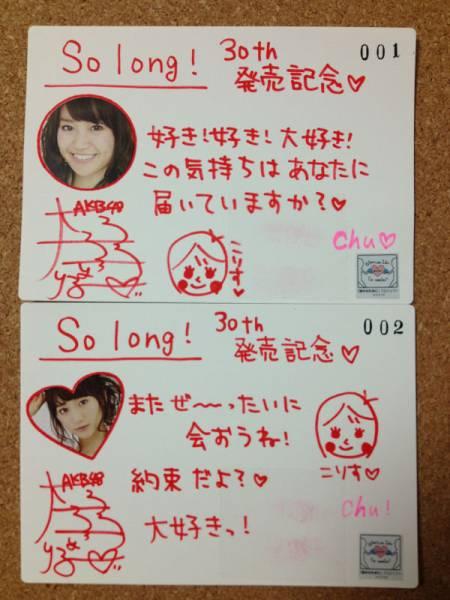 So long!
30th
発売記念♡
001
好き!好き!大好き!
この気持ちはあなたに
届いていますか?♡
AKB48
大
こりす♡
Chu♡
So long!
30th
発売記念♡
002
またぜ〜ったいに
会おうね!
約束だよ?♡
大好きっ!
AKB48
大
こりす♡
Chu!